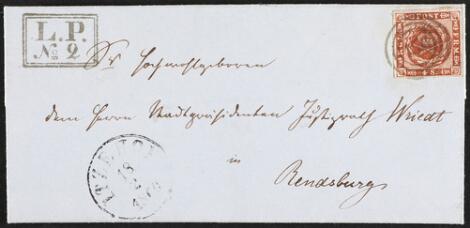 L.P.
№ 2
Sr Hochwohlgeboren
dem Herrn Stadtpräsidenten Justizrath Wriedt
in
Rendsburg
POST
4 S.
ITZEHOE
18